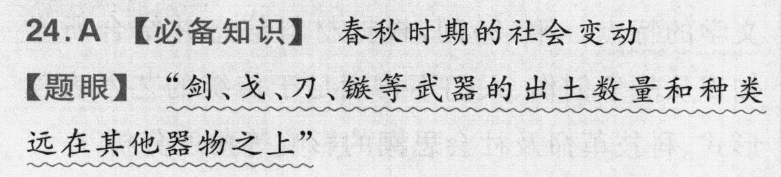 24.A 【必备知识】 春秋时期的社会变动
【题眼】 “剑、戈、刀、镞等武器的出土数量和种类
远在其他器物之上”